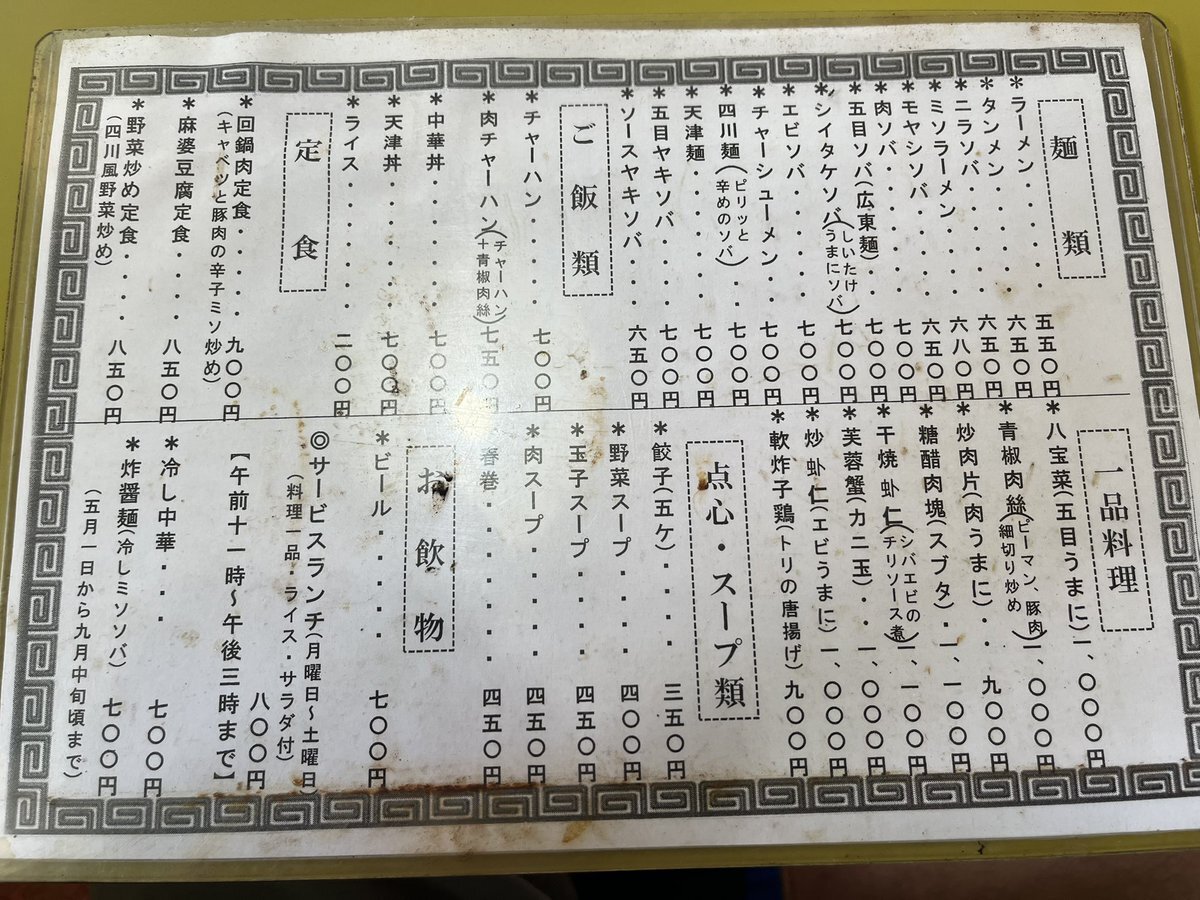 麺類
*ラーメン・・・・・五五〇円
*タンメン・・・・・六五〇円
*ニラソバ・・・・・六五〇円
*ミソラーメン・・・六八〇円
*モヤシソバ・・・・六五〇円
*肉ソバ・・・・・・七〇〇円
*五目ソバ(広東麺)・七〇〇円
*シイタケソバ(しいたけうまにソバ)七〇〇円
*エビソバ・・・・・七〇〇円
*チャーシューメン・・七〇〇円
*四川麺(ピリッと辛めのソバ)・・七〇〇円
*天津麺・・・・・・七〇〇円
*五目ヤキソバ・・・七〇〇円
*ソースヤキソバ・・六五〇円
ご飯類
*チャーハン・・・・七〇〇円
*肉チャーハン(チャーハン+青椒肉絲)七五〇円
*中華丼・・・・・・七〇〇円
*天津丼・・・・・・七〇〇円
*ライス・・・・・・二〇〇円
定食
*回鍋肉定食・・・・九〇〇円
(キャベツと豚肉の辛子ミソ炒め)
*麻婆豆腐定食・・・八五〇円
*野菜炒め定食・・・八五〇円
(四川風野菜炒め)
一品料理
*八宝菜(五目うまに)一、〇〇〇円
*青椒肉絲(ピーマン、豚肉細切り炒め)一、〇〇〇円
*炒肉片(肉うまに)・・九〇〇円
*糖醋肉塊(スブタ)・一、一〇〇円
*干焼虾仁(シバエビのチリソース煮)一、一〇〇円
*芙蓉蟹(カニ玉)・・一、〇〇〇円
*炒虾仁(エビうまに)一、〇〇〇円
*軟炸子鶏(トリの唐揚げ)九〇〇円
点心・スープ類
*餃子(五ケ)・・・・三五〇円
*野菜スープ・・・・四〇〇円
*玉子スープ・・・・四五〇円
*肉スープ・・・・・四五〇円
*春巻・・・・・・・四五〇円
お飲物
*ビール・・・・・・七〇〇円
◎サービスランチ(月曜日〜土曜日)
(料理一品・ライス・サラダ付)
八〇〇円
【午前十一時〜午後三時まで】
*冷し中華・・・七〇〇円
*炸醤麺(冷しミソソバ)七〇〇円
(五月一日から九月中旬頃まで)